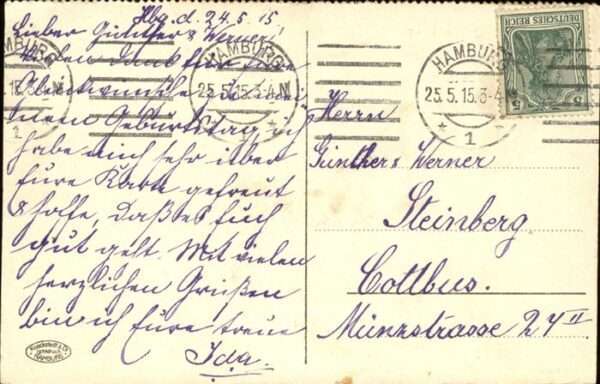 Hbg. d. 24.5.15
Lieber Günther & Werner!
Haben dank für Eure
Glückwünsche zu mei
nem Geburtstag, ich
habe mich sehr über
Eure Karte gefreut
& hoffe, daß es Euch
gut geht. Mit vielen
herzlichen Grüßen
bin ich Eure treue
Ida.
HAMBURG
25.5.15.3-4.N
* 1 *
HAMBURG
25.5.15.3-4
* 1
DEUTSCHES REICH
5 5
Herrn
Günther & Werner
Steinberg
Cottbus.
Münzstrasse 27 II
HAMBURG